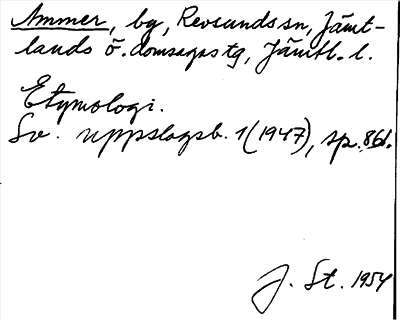 Ammer, by, Revsunds sn, Jämt-
lands ö. domsagas tg, Jämtl. l.
Etymologi.
Sv. uppslagsb. 1 (1947), sp. 861.
J. St. 1954